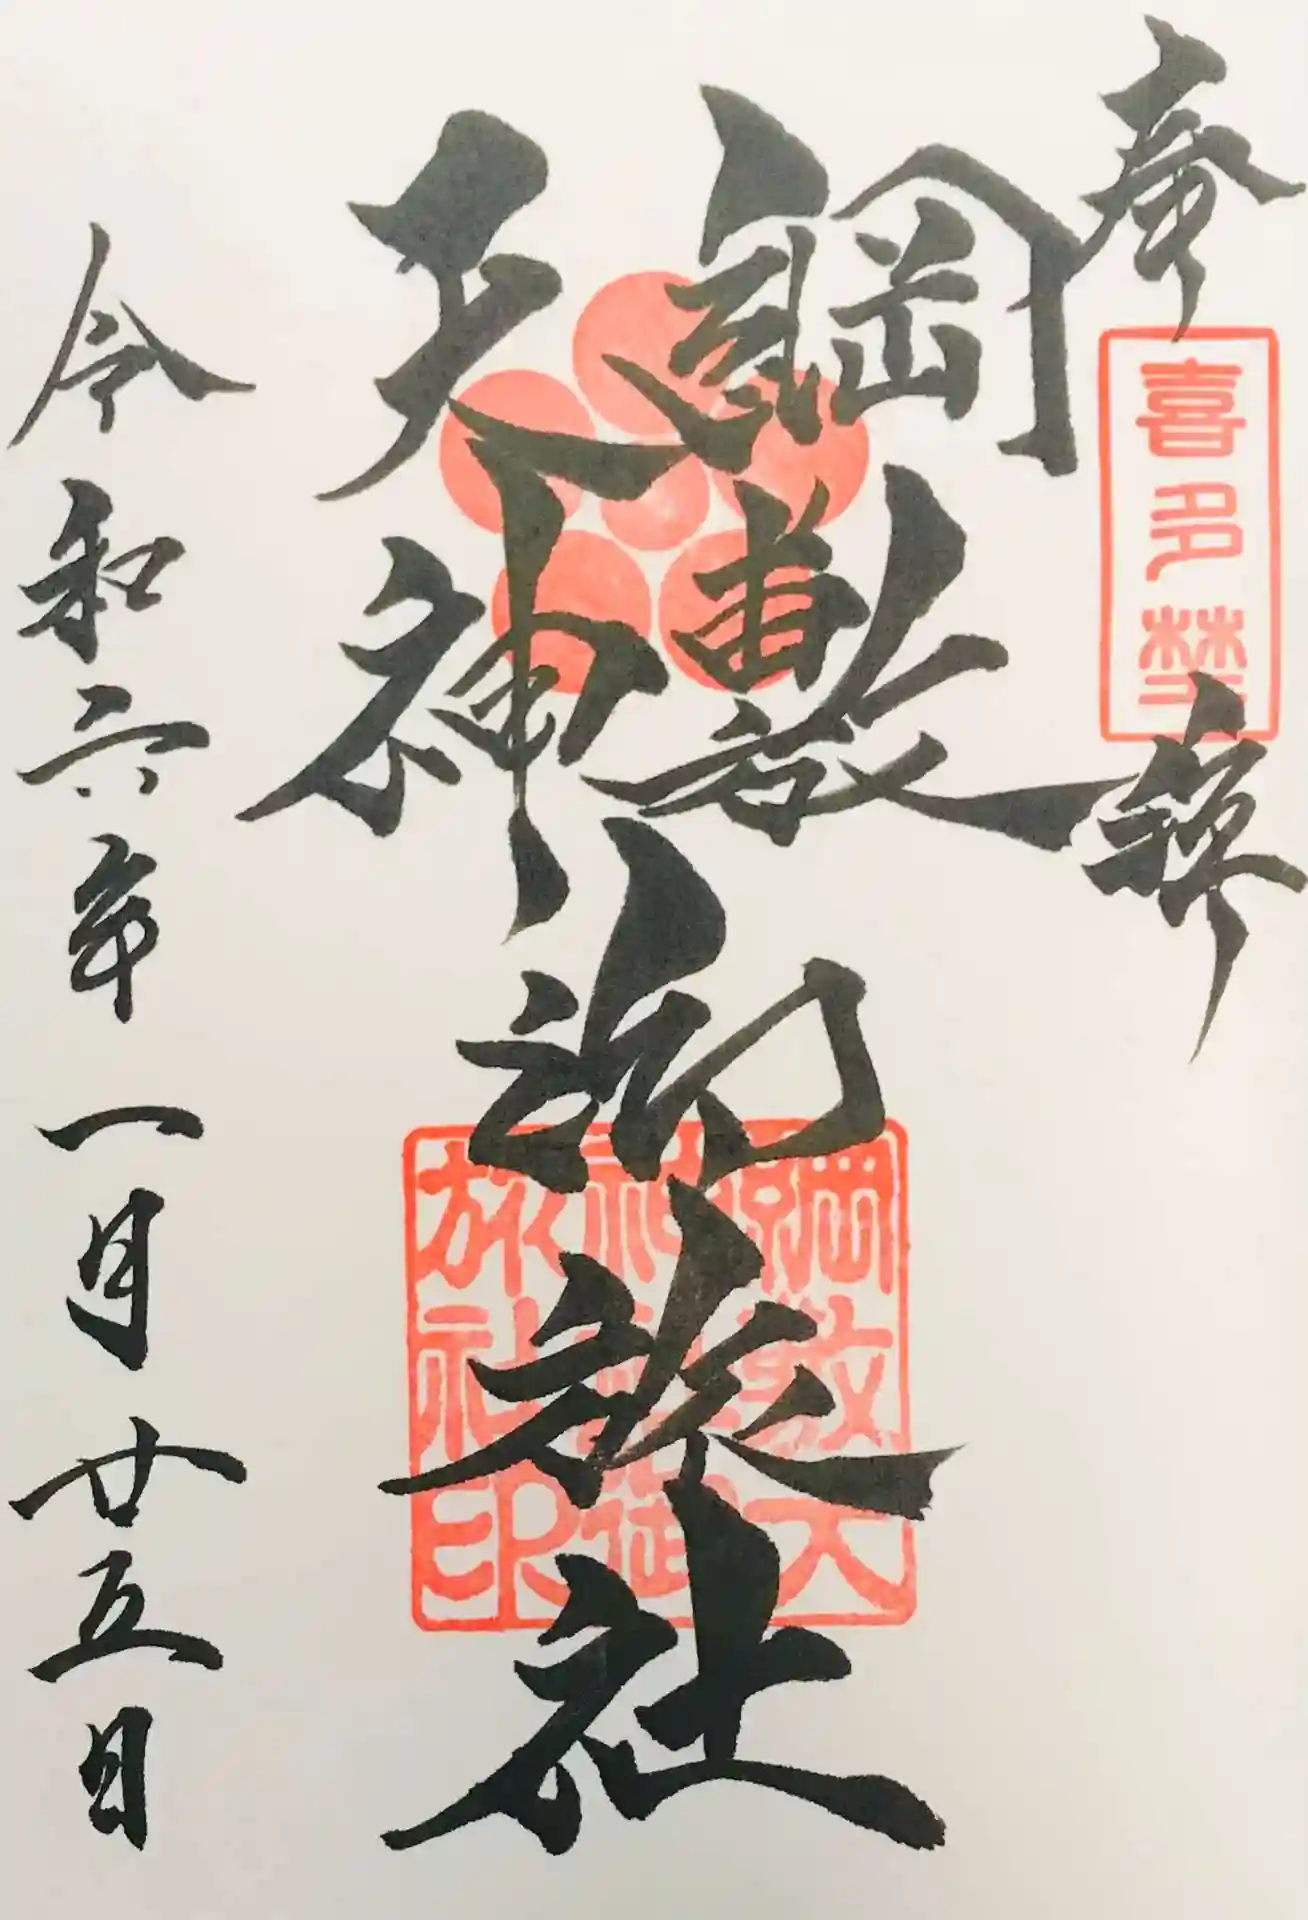 奉拝
喜多埜
綱敷
天神
御旅社
綱敷天
神社御
旅社印
令和六年一月廿五日